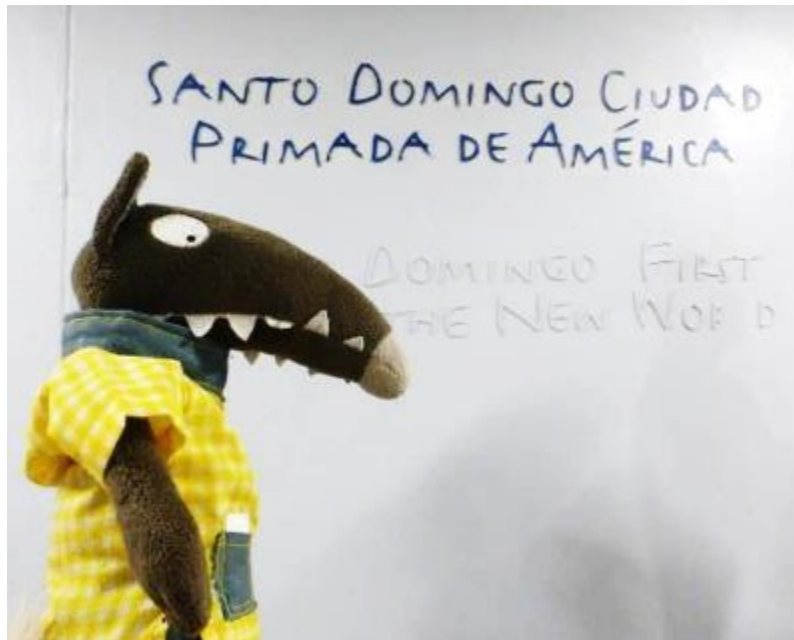 SANTO DOMINGO CIUDAD
PRIMADA DE AMÉRICA
DOMINGO FIRST
THE NEW WORLD